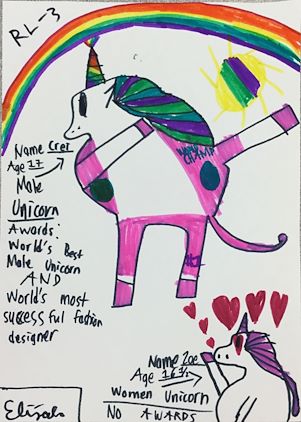 RL-3
Name Crei
Age 17
Male
Unicorn
Awards:
World's Best
Male Unicorn
AND
World's most
successful fashion
designer
CHAMP
Name Zoe
Age 16 1/2
Women Unicorn
NO AWARDS